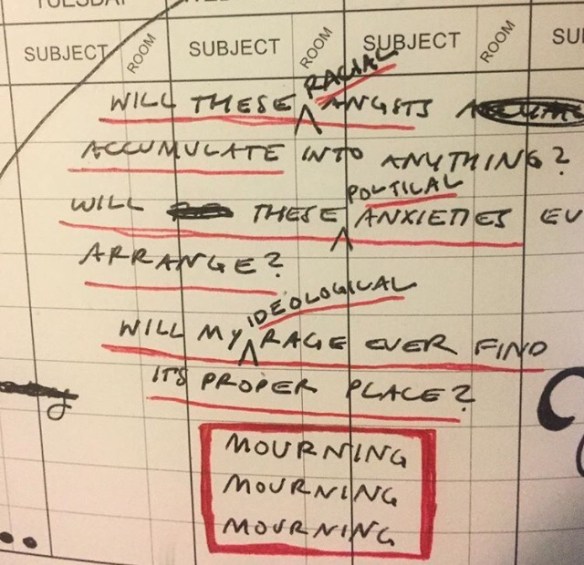 TUESDAY
SUBJECT ROOM SUBJECT ROOM SUBJECT ROOM SU
RACIAL
WILL THESE ANGSTS
ACCUMULATE INTO ANYTHING?
POLTILAL
WILL THESE ANXIETIES EV
ARRANGE?
IDEOLOGICAL
WILL MY RAGE EVER FIND
ITS PROPER PLACE?
MOURNING
MOURNING
MOURNING